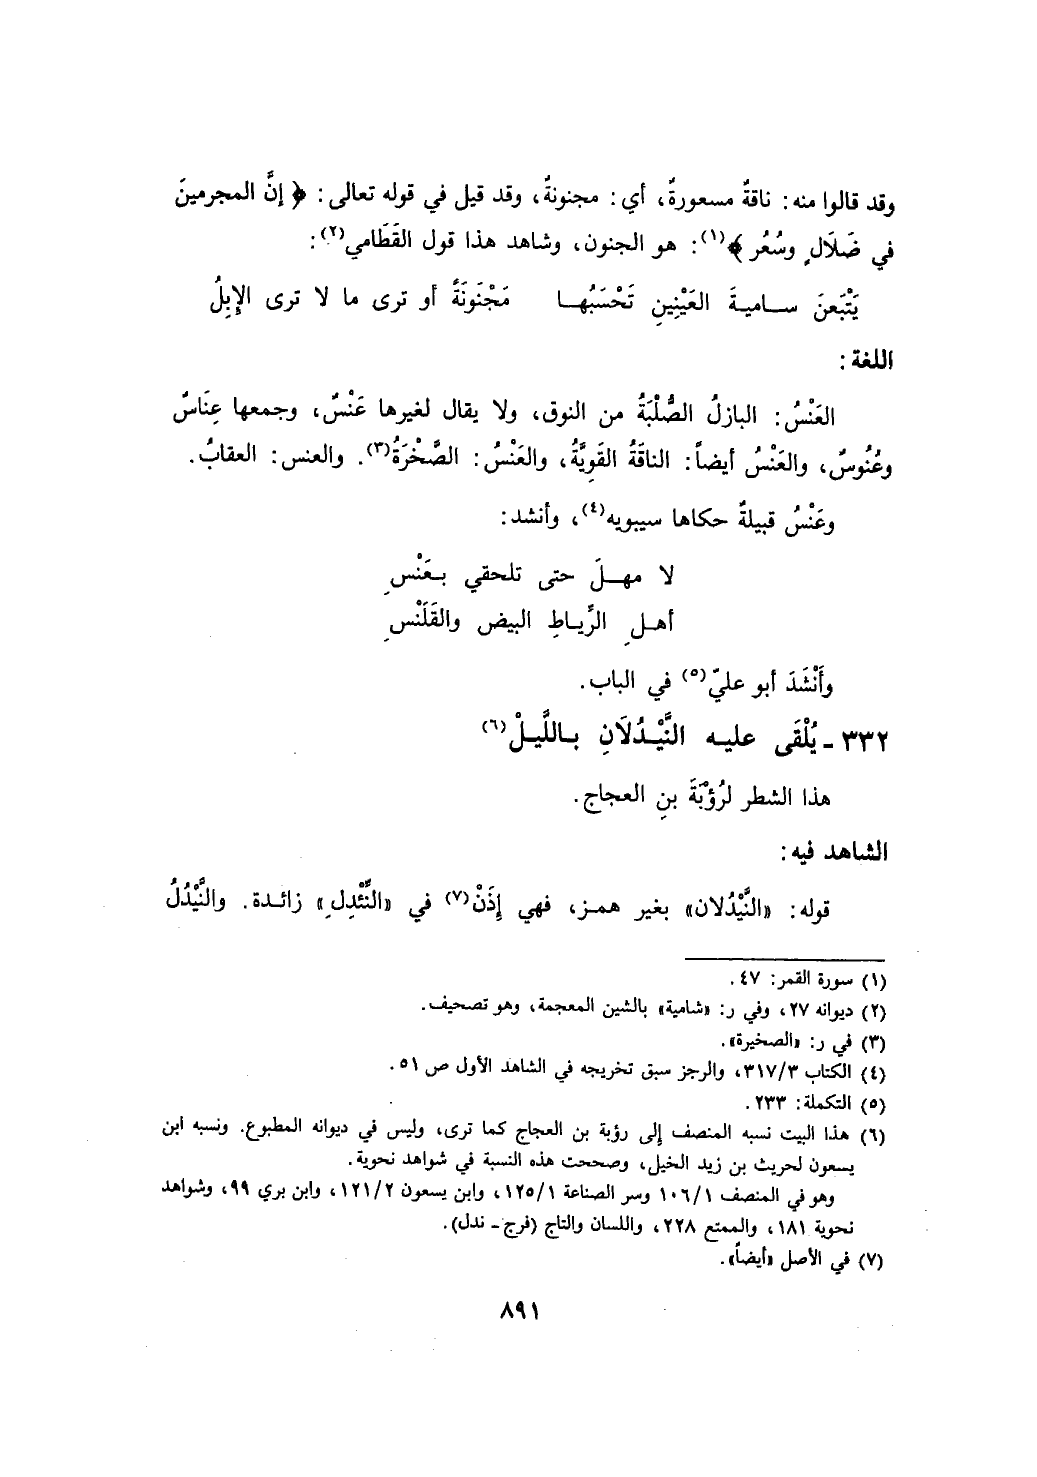 وقد قالوا منه: ناقةٌ مسعورةٌ، أي: مجنونةٌ، وقد قيل في قوله تعالى: ﴿ إنَّ المجرمينَ
في ضَلَالٍ وسُعُر ﴾(١): هو الجنون، وشاهد هذا قول القَطَامي(٢):
يَتْبَعنَ ســاميةَ العَيْنِينِ تَحْسَبُهــا مَجْنَونَةً أو ترى ما لا ترى الإِبِلُ
اللغة:
العَنْسُ: البازلُ الصُّلْبَةُ من النوق، ولا يقال لغيرها عَنْسٌ، وجمعها عِنَاسٌ
وعُنُوسٌ، والعَنْسُ أيضاً: الناقَةُ القَوِيَّةُ، والعَنْسُ: الصَّخْرَةُ(٣). والعنس: العقابُ.
وعَنْسُ قبيلةٌ حكاها سيبويه(٤)، وأنشد:
لا مهــلَ حتى تلحقي بـعَنْسِ
أهــلِ الرِّيـاطِ البيض والقَلَنْسِ
وأَنْشَدَ أبو عليّ(٥) في الباب.
٣٣٢ ـ يُلْقَى عليـه النَّيْـدُلَانِ بـاللَّيـلْ(٦)
هذا الشطر لرُؤبَةَ بنِ العجاج.
الشاهد فيه:
قوله: «النَّيْدُلان» بغير همـز، فهي إِذَنْ(٧) في «النِّئْدِلِ» زائـدة. والنَّيْدُلُ
(١) سورة القمر: ٤٧.
(٢) ديوانه ٢٧، وفي ر: «شامية» بالشين المعجمة، وهو تصحيف.
(٣) في ر: «الصخيرة».
(٤) الكتاب ٣١٧/٣، والرجز سبق تخريجه في الشاهد الأول ص ٥١.
(٥) التكملة: ٢٣٣.
(٦) هذا البيت نسبه المنصف إلى رؤبة بن العجاج كما ترى، وليس في ديوانه المطبوع. ونسبه ابن
يسعون لحريث بن زيد الخيل، وصححت هذه النسبة في شواهد نحوية.
وهو في المنصف ١٠٦/١ وسر الصناعة ١٢٥/١، وابن يسعون ١٢١/٢، وابن بري ٩٩، وشواهد
نحوية ١٨١، والممتع ٢٢٨، واللسان والتاج (فرج ـ ندل).
(٧) في الأصل «أيضاً».
٨٩١